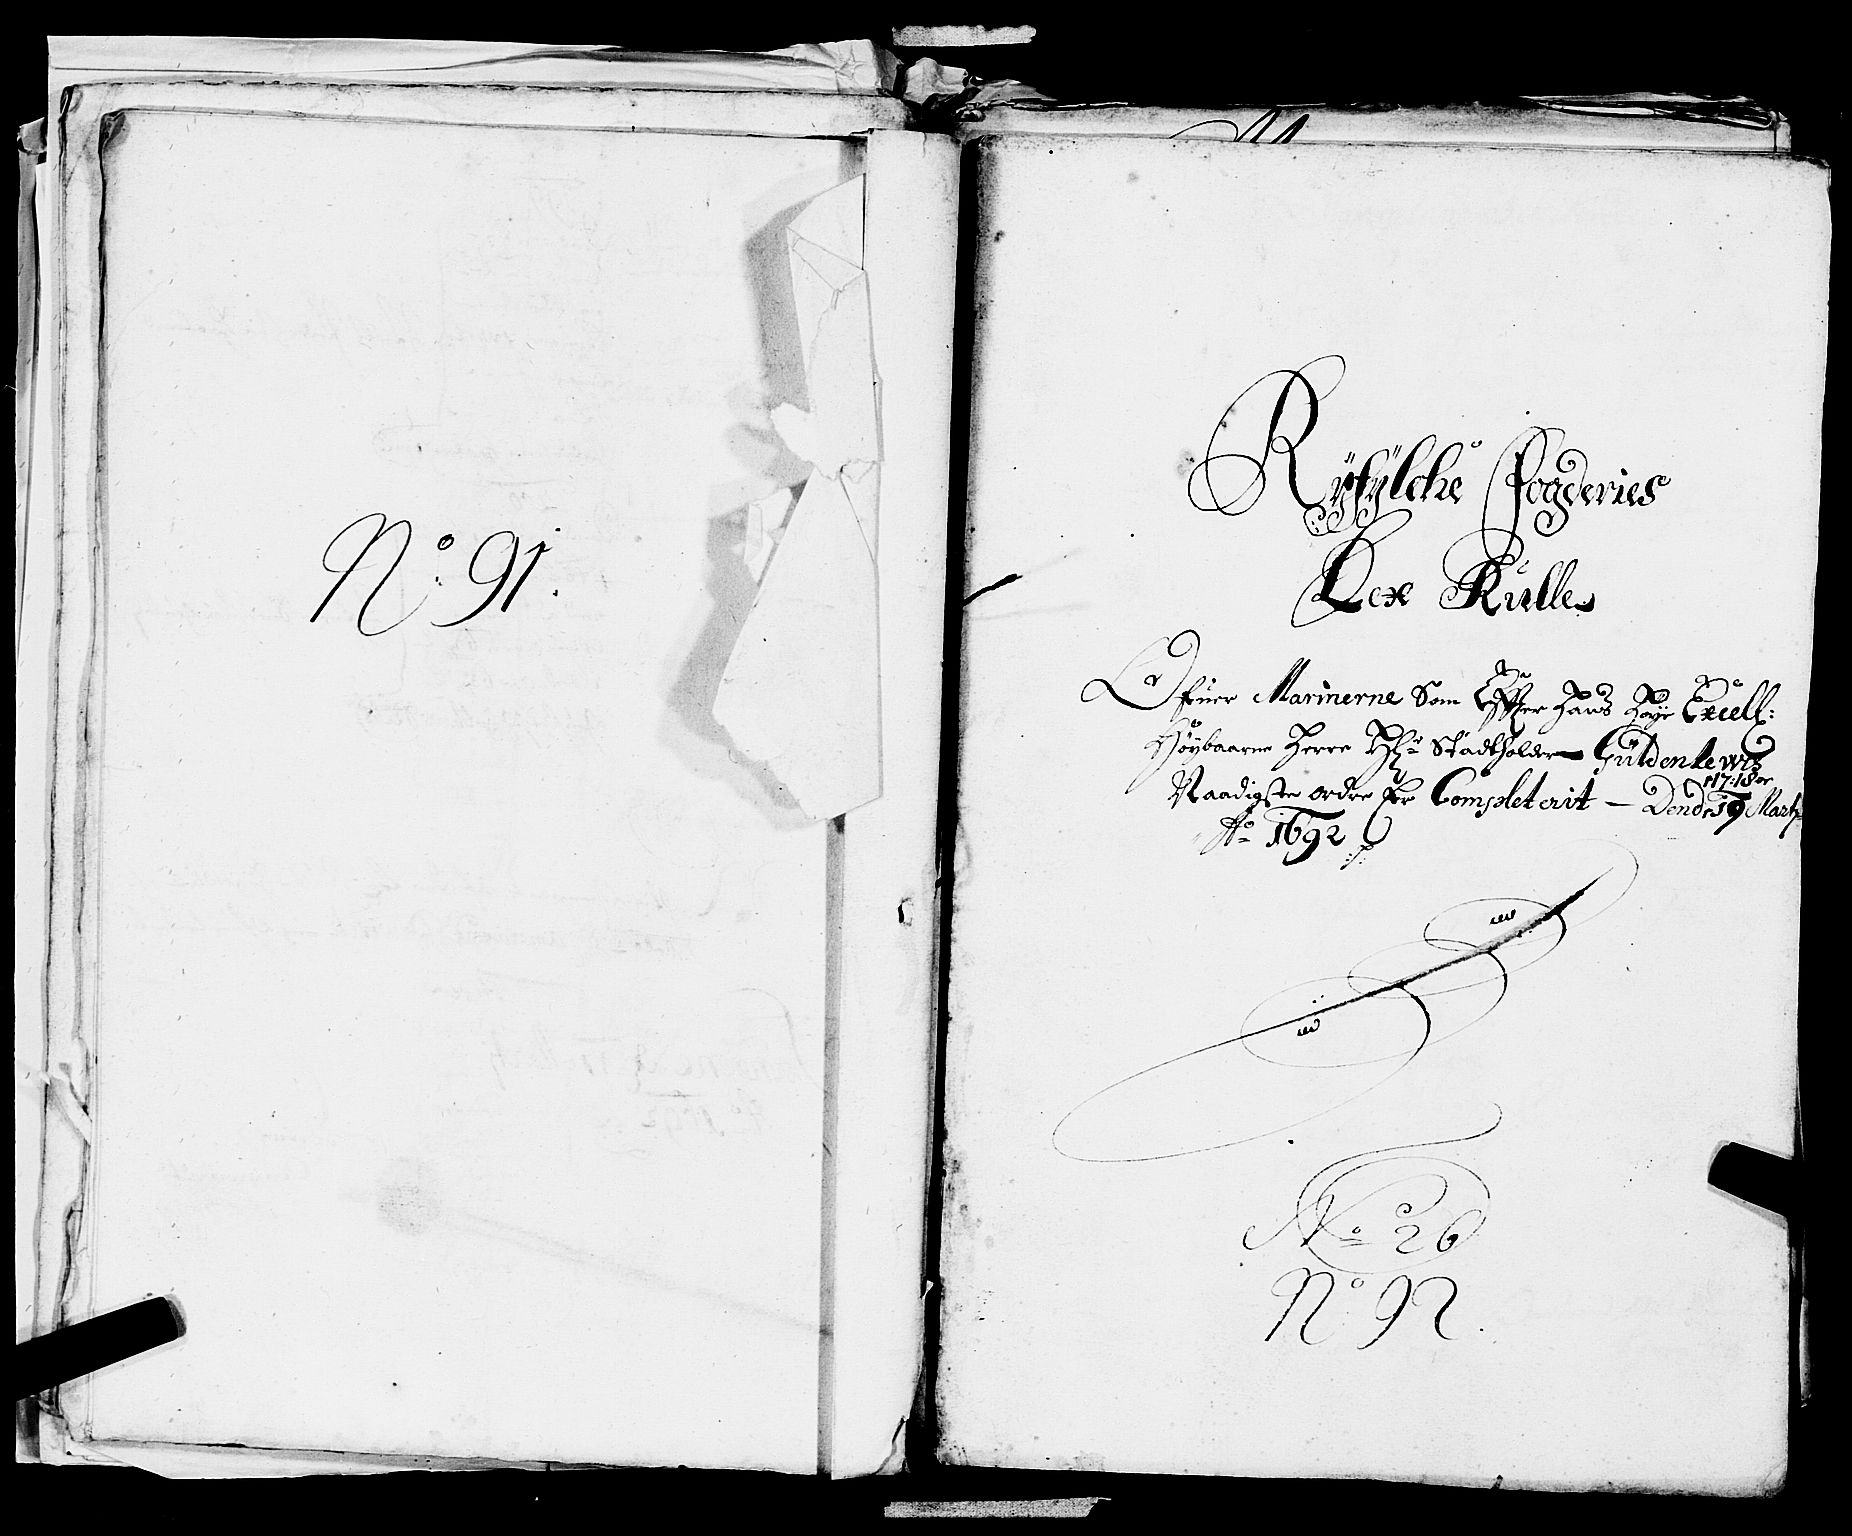 No: 91.
Ryfylche Fogderies
Lex Rulle
Ofuer Marinerne Som Effter Hans Høye Excell:
Høybaarne Herre Hr Stadtholder Güldenlewis
Naadigste ordre Er Completerit - Dend 17: 18 de
19 Marty
Ao 1692
No 26
No 92.